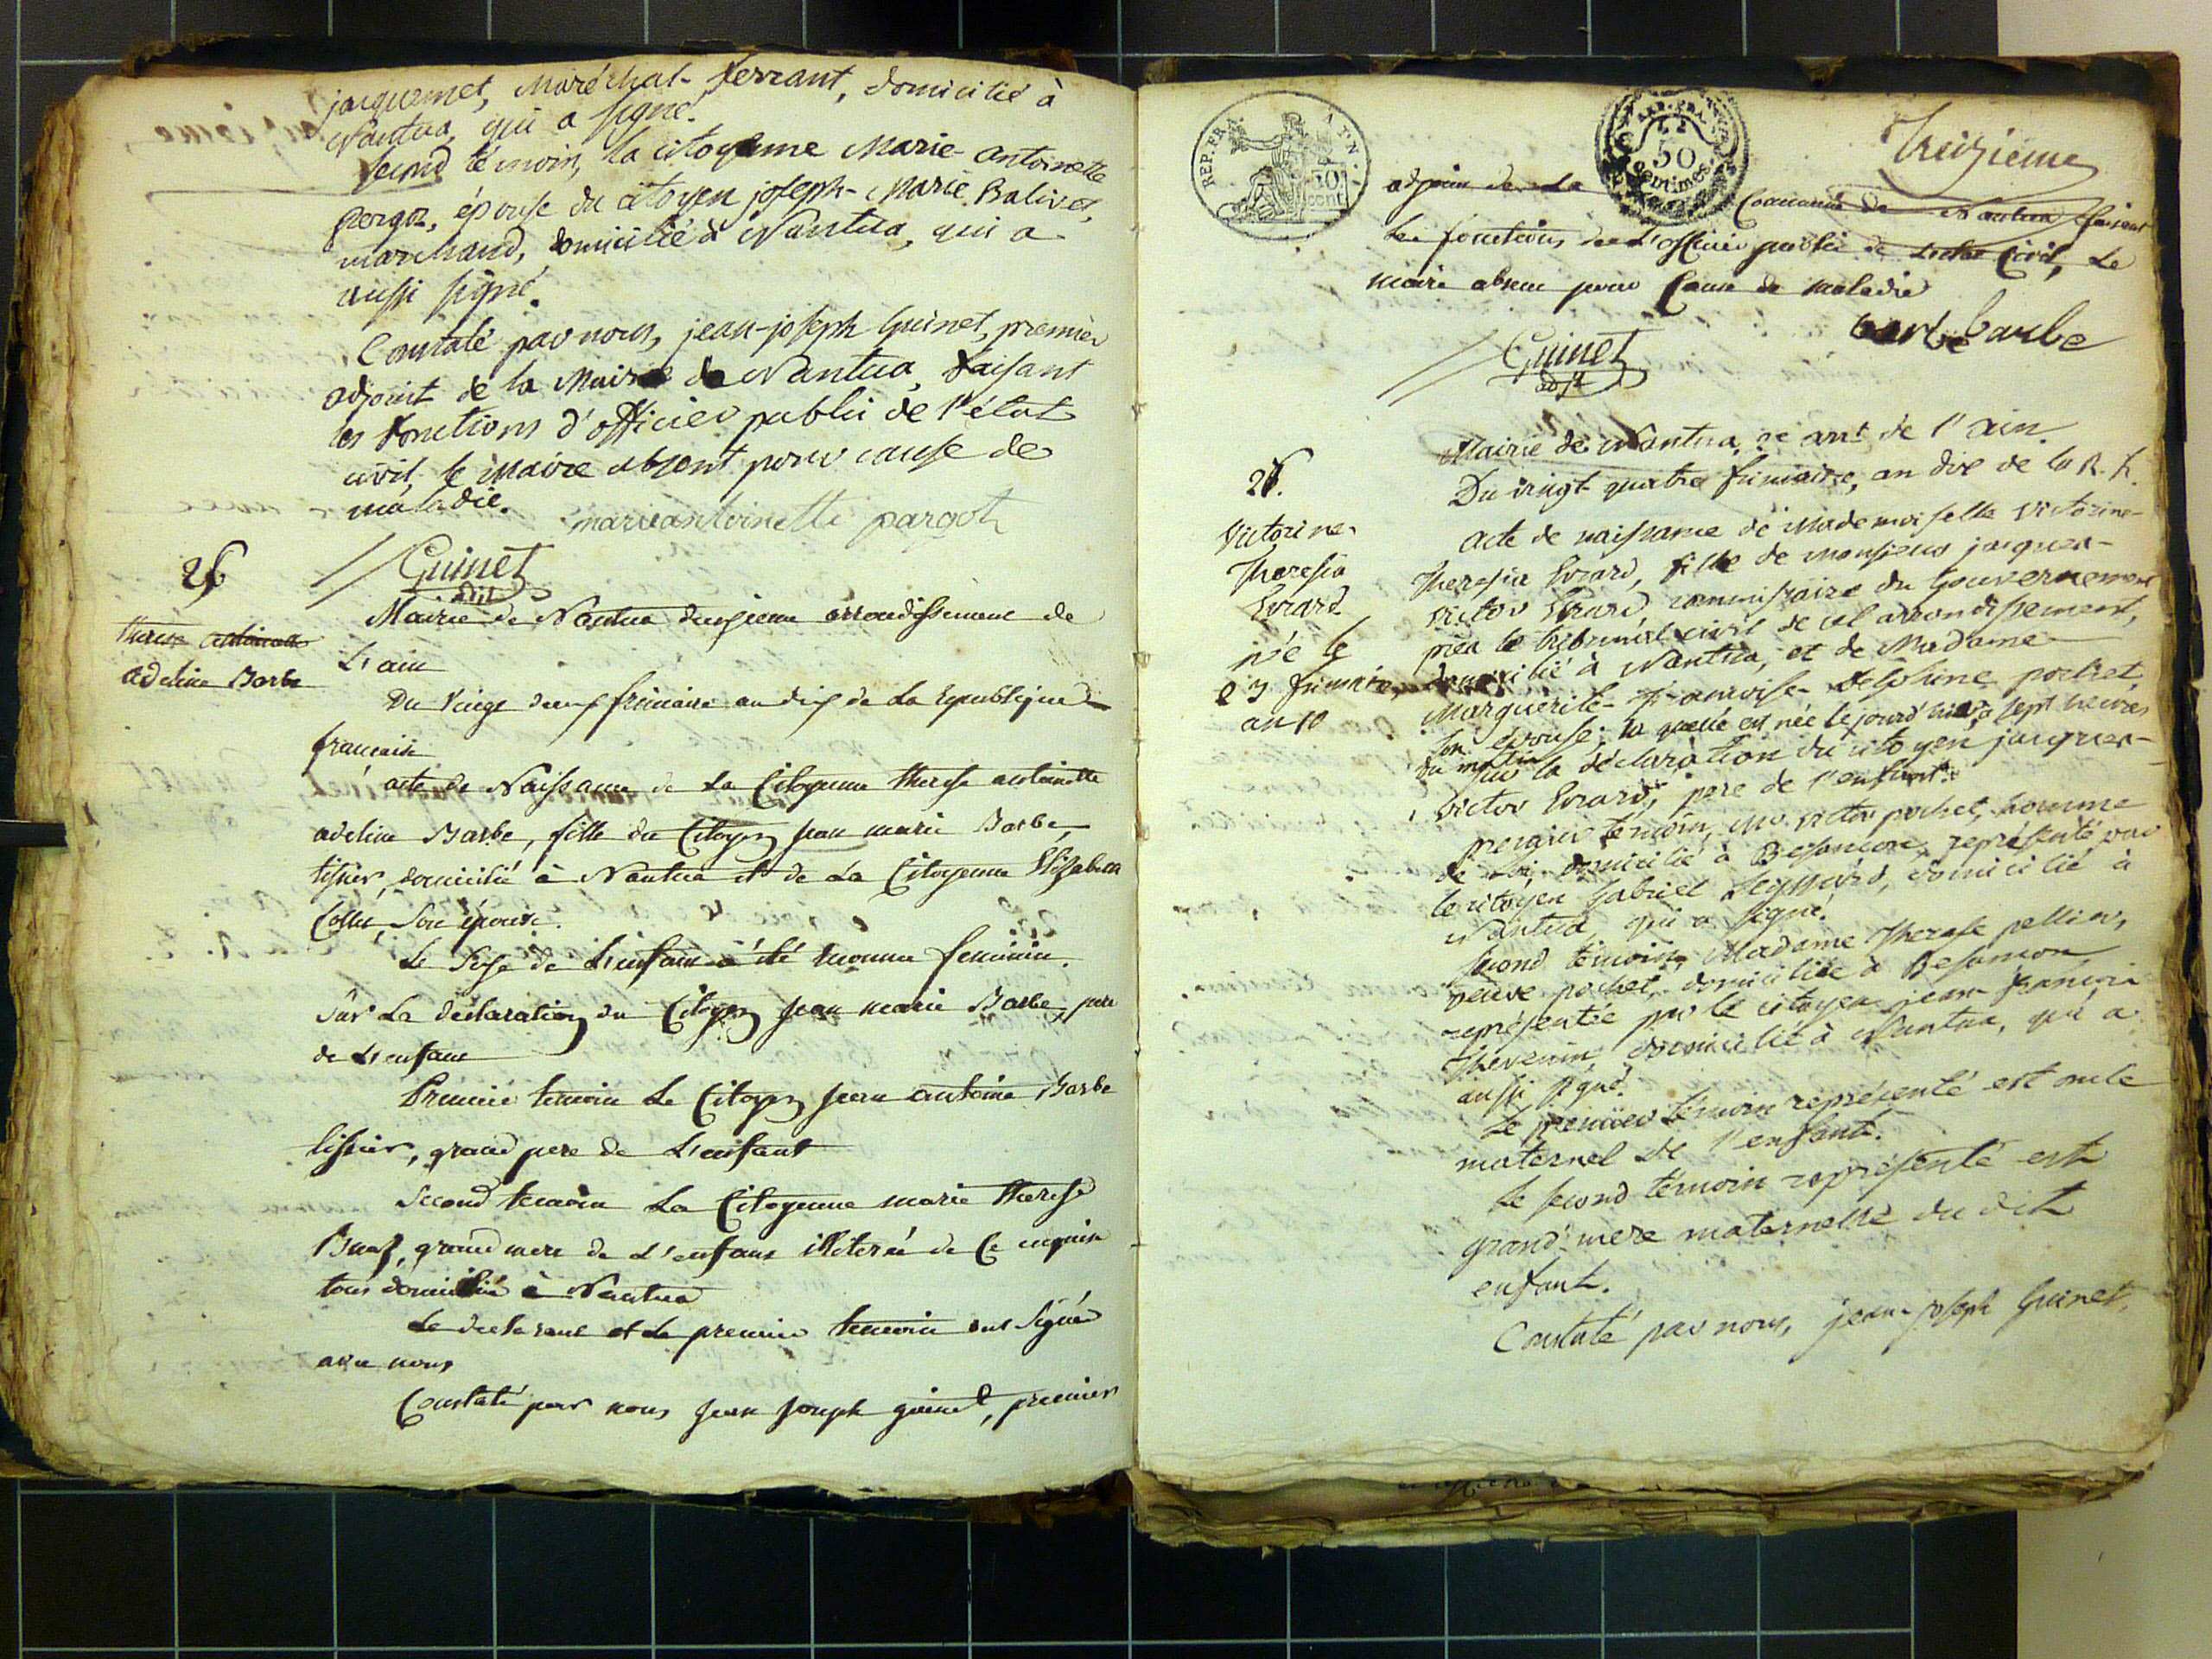 jacquemet, Maréchal-ferrant, domicilié à
Nantua, qui a signé.
second témoin, la citoyenne Marie-antoinette
pargoz, épouse du citoyen joseph-Marie Balivet,
marchand, domicilié à Nantua, qui a
aussi signé.
Constaté par nous, jean-joseph Guinet, premier
adjoint de la Mairie de Nantua, faisant
les fonctions d'officier public de l'état
civil, le Maire absent pour cause de
maladie.
marieantoinette pargoz
Guinet
adjt
26
therese antoinette
adeline Barbe
Mairie de Nantua deuxieme arrondissement de
L'ain
Du Vingt deux frimaire an dix de la Republique
francaise
acte de Naissance de La Citoyenne therese antoinette
adeline Barbe, fille du Citoyen jean marie Barbe,
tissier, domicilié à Nantua et de La Citoyenne Elizabeth
Collet, Son épouse.
Le Sexe de L'enfant a été reconnu feminin.
Sur La declaration du Citoyen jean marie Barbe, pere
de L'enfant
Premier temoin Le Citoyen jean antoine Barbe
tissier, grand pere de L'enfant
Second temoin La Citoyenne marie therese
grand mere de L'enfant illiterée de Ce enquise
tous domicilié à Nantua
Le declarant et Le premier temoin ont Signé
avec nous
Constaté par nous jean joseph guinet, premier
REP. FRA. 50 cent
REP. FRA. 50 centimes
Treizieme
adjoint de La Commune de Nantua faisant
Les fonctions de L'officier public de Letat Civil, Le
maire absent pour Cause de maladie
barbe barbe
Guinet
adjt
27.
Victorine-
Theresia
Evrard
née le
23 frimaire
an 10
Mairie de Nantua, 2e arrt de l'ain.
Du vingt-quatre frimaire, an dix de la R. f.
acte de naissance de Mademoiselle Victorine-
Theresia Evrard, fille de Monsieur jacques-
victor Evrard, commissaire du Gouvernement
près le tribunal civil de cet arrondissement,
domicilié à Nantua, et de Madame
Marguerite-françoise-Delphine pochet,
son épouse; la quelle est née le jour d'hier, à sept heures
du matin
sur la déclaration du citoyen jacques-
victor Evrard, père de l'enfant.
premier témoin, Mr victor pochet, homme
de loi, domicilié à Besancon, représenté par
le citoyen Gabriel domicilié à
Nantua, qui a signé.
second témoin, Madame Therese pellier,
veuve pochet, domiciliée à Besancon,
représentée par le citoyen jean françois
Thevenin, domicilié à Nantua, qui a
aussi signé.
Le premier témoin représenté est oncle
maternel de l'enfant.
Le second témoin représenté est
grand'mere maternelle du dit
enfant.
Constaté par nous, jean-joseph Guinet,